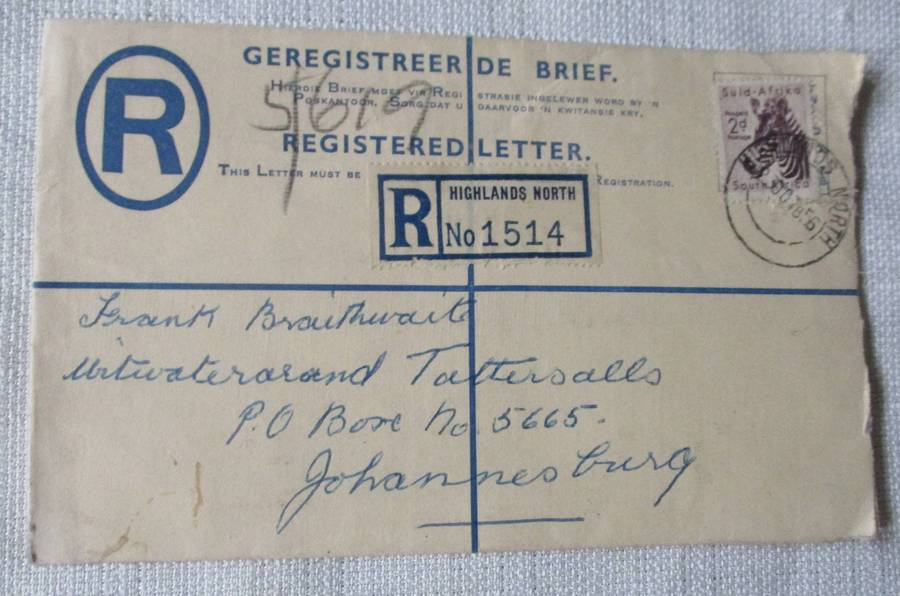 R
GEREGISTREERDE BRIEF.
HIERDIE BRIEF MOET VIR REGISTRASIE INGELEWER WORD BY 'N
POSKANTOOR. SORG DAT U DAARVOOR 'N KWITANSIE KRY.
5/619
REGISTERED LETTER.
THIS LETTER MUST BE REGISTRATION.
R HIGHLANDS NORTH
No 1514
Suid-Afrika
2d
Postage
South Africa
NORTH
Frank Braithwaite
Witwatersrand Tattersalls
P.O Box No 5665.
Johannesburg